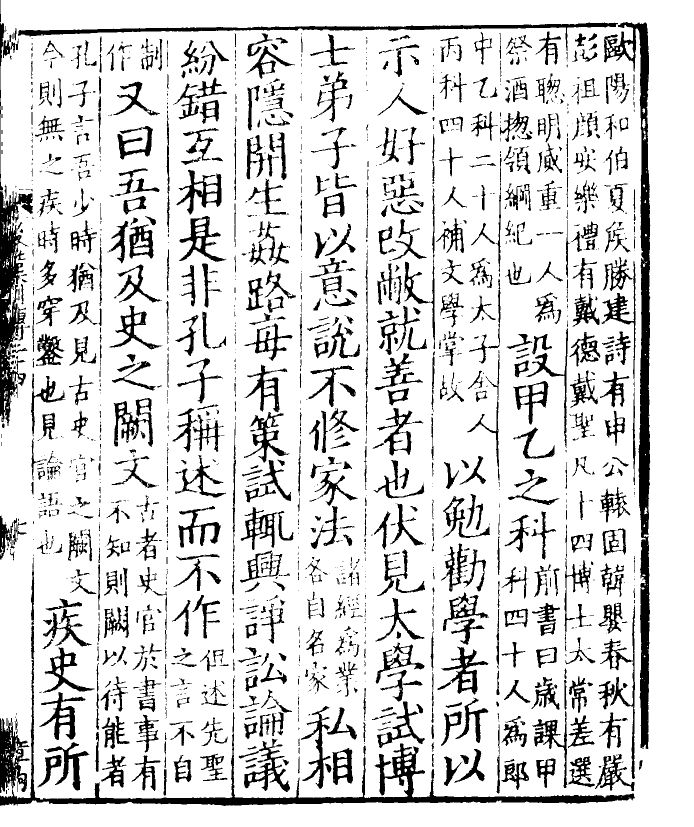 歐陽和伯夏侯勝建詩有申公轅固韓嬰春秋有嚴
彭祖顔安樂禮有戴德戴聖凡十四博士太常差選
有聦明威重一人爲
祭酒揔領綱紀也
設甲乙之科
前書曰歲課甲
科四十人爲郎
中乙科二十人爲太子舍人
丙科四十人補文學掌故
以勉勸學者所以
示人好惡改敝就善者也伏見太學試博
士弟子皆以意說不修家法
諸經爲業
各自名家
私相
容隱開生姦路每有策試輒興諍訟論議
紛錯互相是非孔子稱述而不作
但述先聖
之言不自
制
作
又曰吾猶及史之闕文
古者史官於書事有
不知則闕以待能者
孔子言吾少時猶及見古史官之闕文
今則無之疾時多穿鑿也見論語也
疾史有所